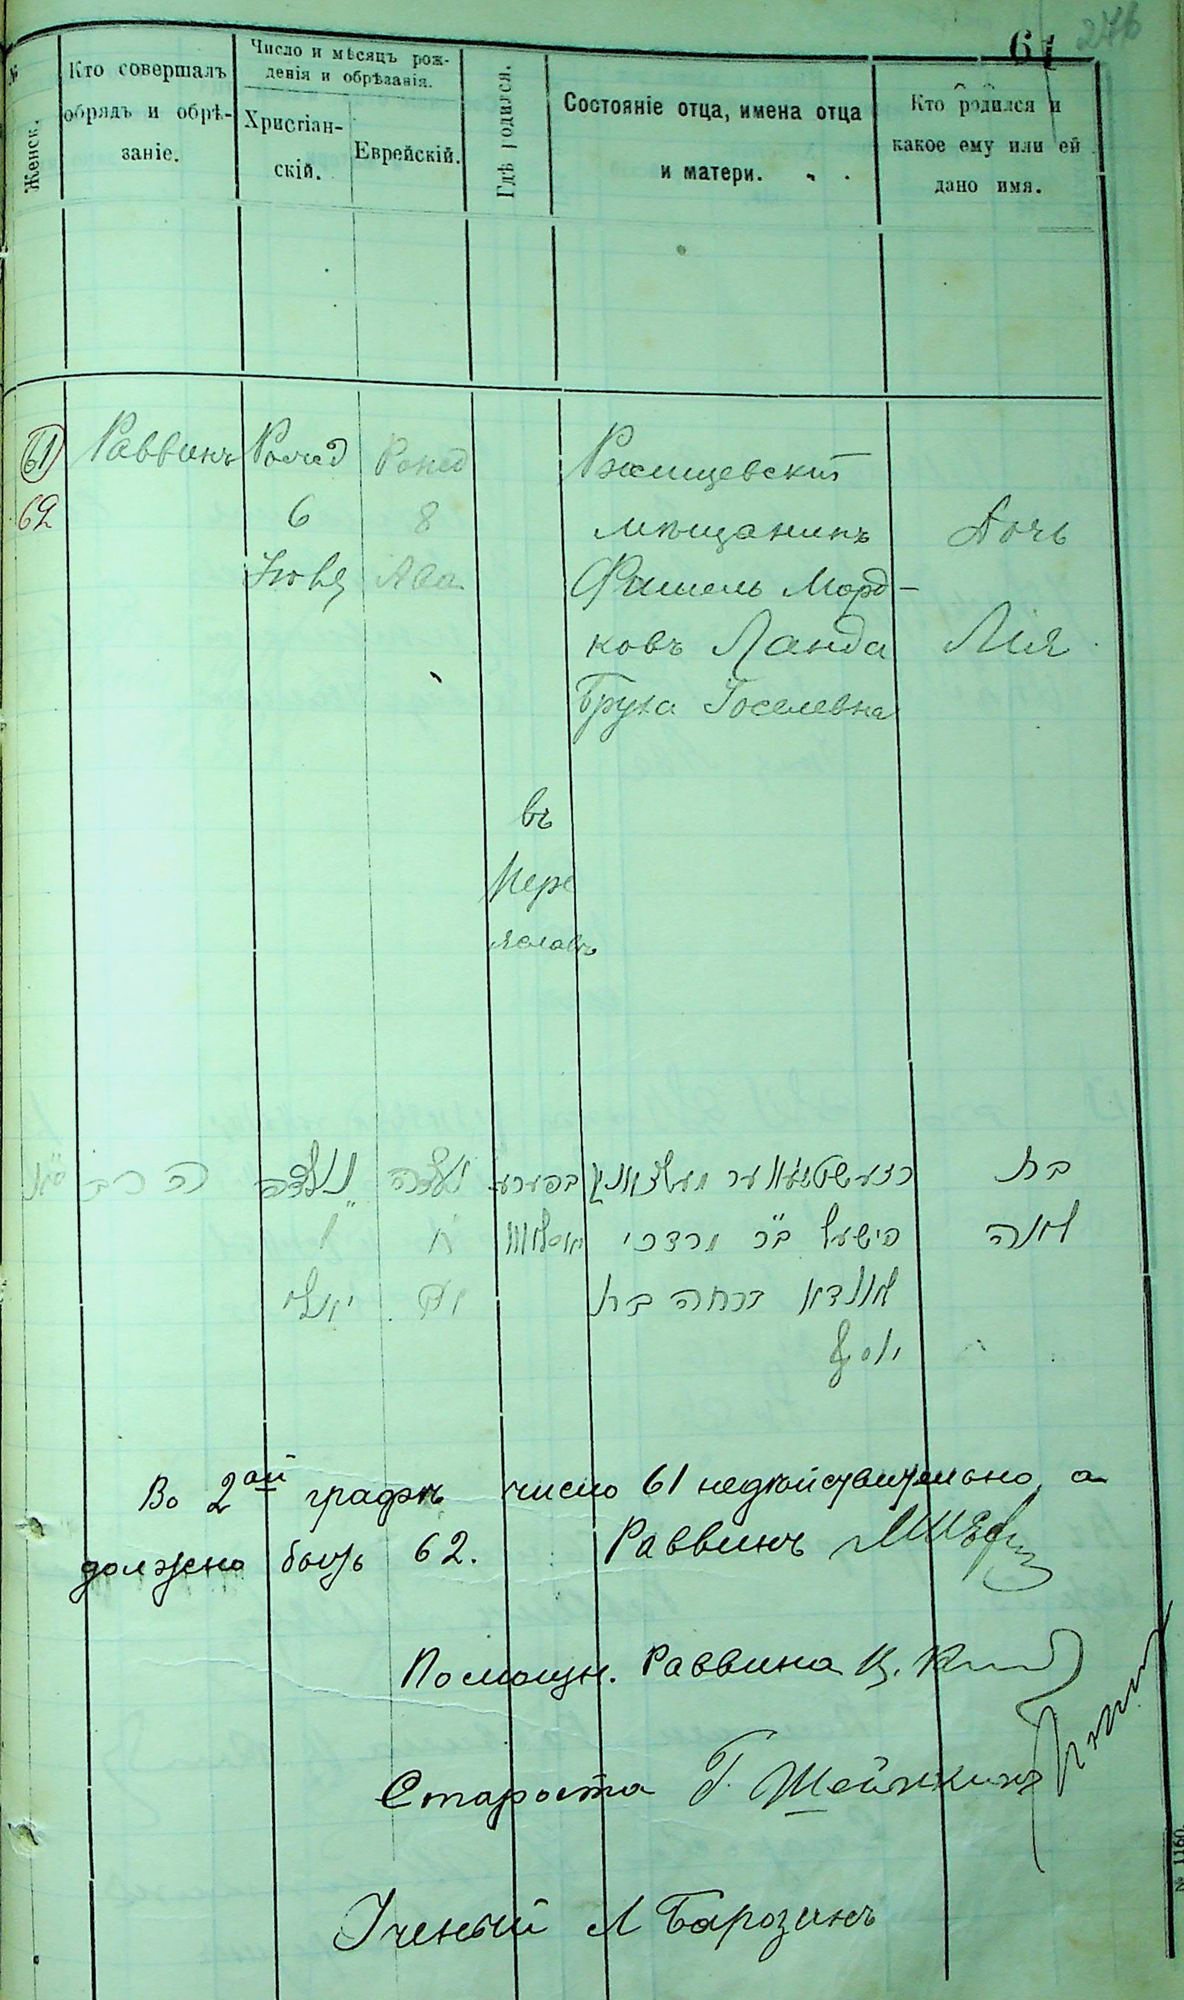 61
246
№
Женск.
Кто совершалъ
обрядъ и обрѣ-
заніе.
Число и мѣсяцъ рож-
денія и обрѣзанія.
Христіан-
скій.
Еврейскій.
Гдѣ родился.
Состояніе отца, имена отца
и матери.
Кто родился и
какое ему или ей
дано имя.
61
62
Раввинъ
6
8
Ава
въ
Пере
яславѣ
Ржищевскій
мѣщанинъ
Фишель Морд-
ковъ Ланда
Бруха Іоселевна
Дочь
Лія
בת
לאה
פישעל ב״ר מרדכי
לאנדא ברכה בת
יוסף
נולדה
Во 2ой графѣ число 61 недѣйствительно, а
должно быть 62. Раввинъ
Помощн. Раввина
Староста Г. Шейнкинъ
Ученый Л Барозинъ
№ 1160.